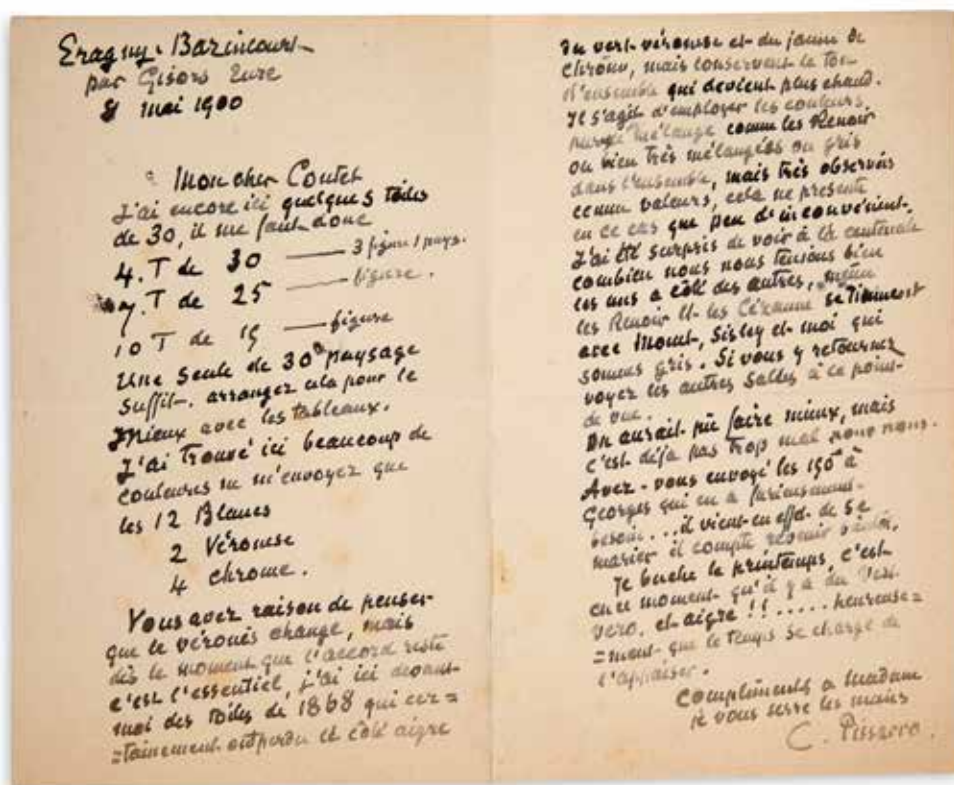 Eragny-Bazincourt
par Gisors Eure
8 mai 1900
Mon cher Contet
J'ai encore ici quelques toiles
de 30, il me faut donc
4. T de 30 — 3 figure 1 pays.
7. T de 25 — figure.
10 T de 15 — figure
Une seule de 30 paysage
suffit. arrangez cela pour le
mieux avec les tableaux.
J'ai trouvé ici beaucoup de
couleures ne m'envoyez que
les 12 Blancs
2 Véronese
4 chrome.
Vous avez raison de penser
que le véronès change, mais
dès le moment que l'accord reste
c'est l'essentiel, j'ai ici devant
moi des toiles de 1868 qui cer=
=tainement ont perdu ce côté aigre
du vert véronese et du jaune de
chrôme, mais conservent le ton
d'ensemble qui devient plus chaud.
Il s'agit d'employer les couleurs
mélange comme les Renoir
ou bien très mélangées ou gris
dans l'ensemble, mais très observés
comme valeurs, cela ne présente
en ce cas que peu d'inconvénient.
J'ai été surpris de voir à la centenale
combien nous nous tenions bien
les uns à côté des autres, même
les Renoir et les Cézanne se tiennent
avec Monet, Sisley et moi qui
sommes gris. Si vous y retournez
voyez les autres salles à ce point
de vue.
On aurait pu faire mieux, mais
c'est déja pas trop mal pour nous.
Avez-vous envoyé les 150f à
Georges qui en a furieusement
besoin... il vient en effet de se
marier il compte revenir bientôt.
Je bûche le printemps, c'est
en ce moment qu'il y a du vert
vero. et aigre !!..... heureuse=
=ment que le temps se charge de
l'appaiser.
Compliments a madame
je vous serre les mains
C. Pissarro.